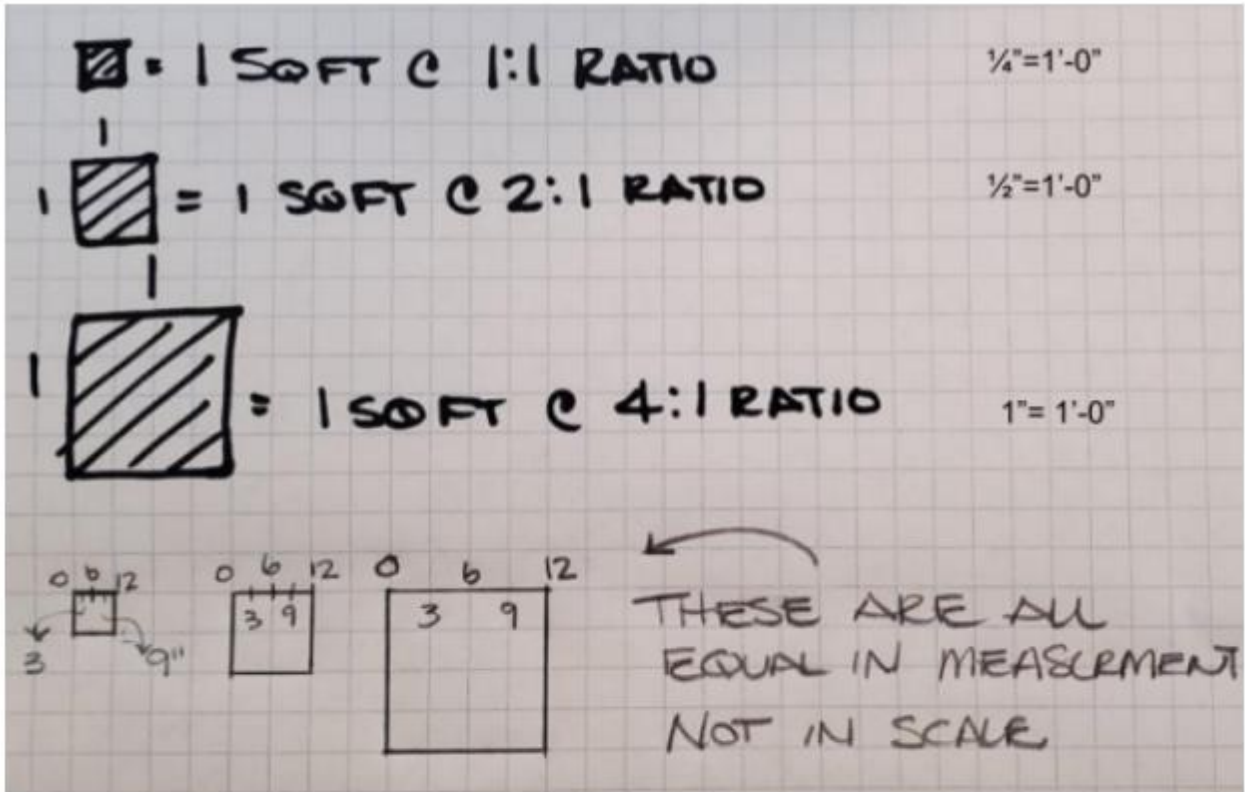 = 1 SQFT @ 1:1 RATIO ¼"=1'-0"
1
1 = 1 SQFT @ 2:1 RATIO ½"=1'-0"
1
1 = 1 SQFT @ 4:1 RATIO 1"= 1'-0"
0 6 12 0 6 12 0 6 12
3 9" 3 9 3 9
THESE ARE ALL
EQUAL IN MEASURMENT
NOT IN SCALE